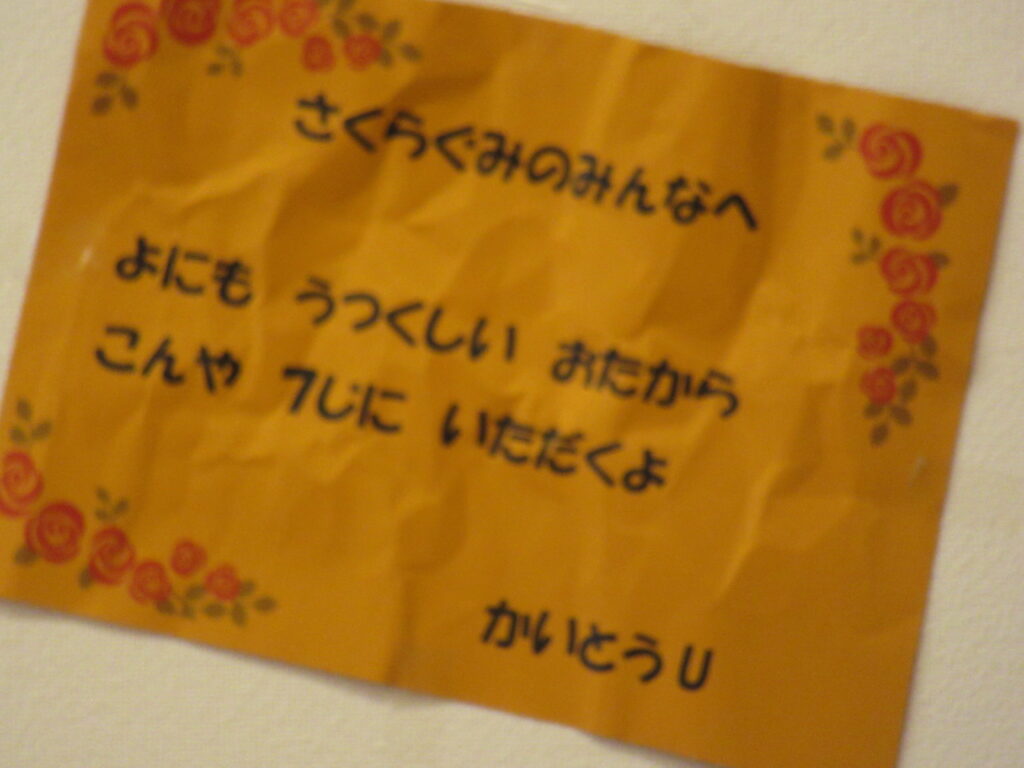 さくらぐみのみんなへ
よにも うつくしい おたから
こんや 7じに いただくよ
かいとうU